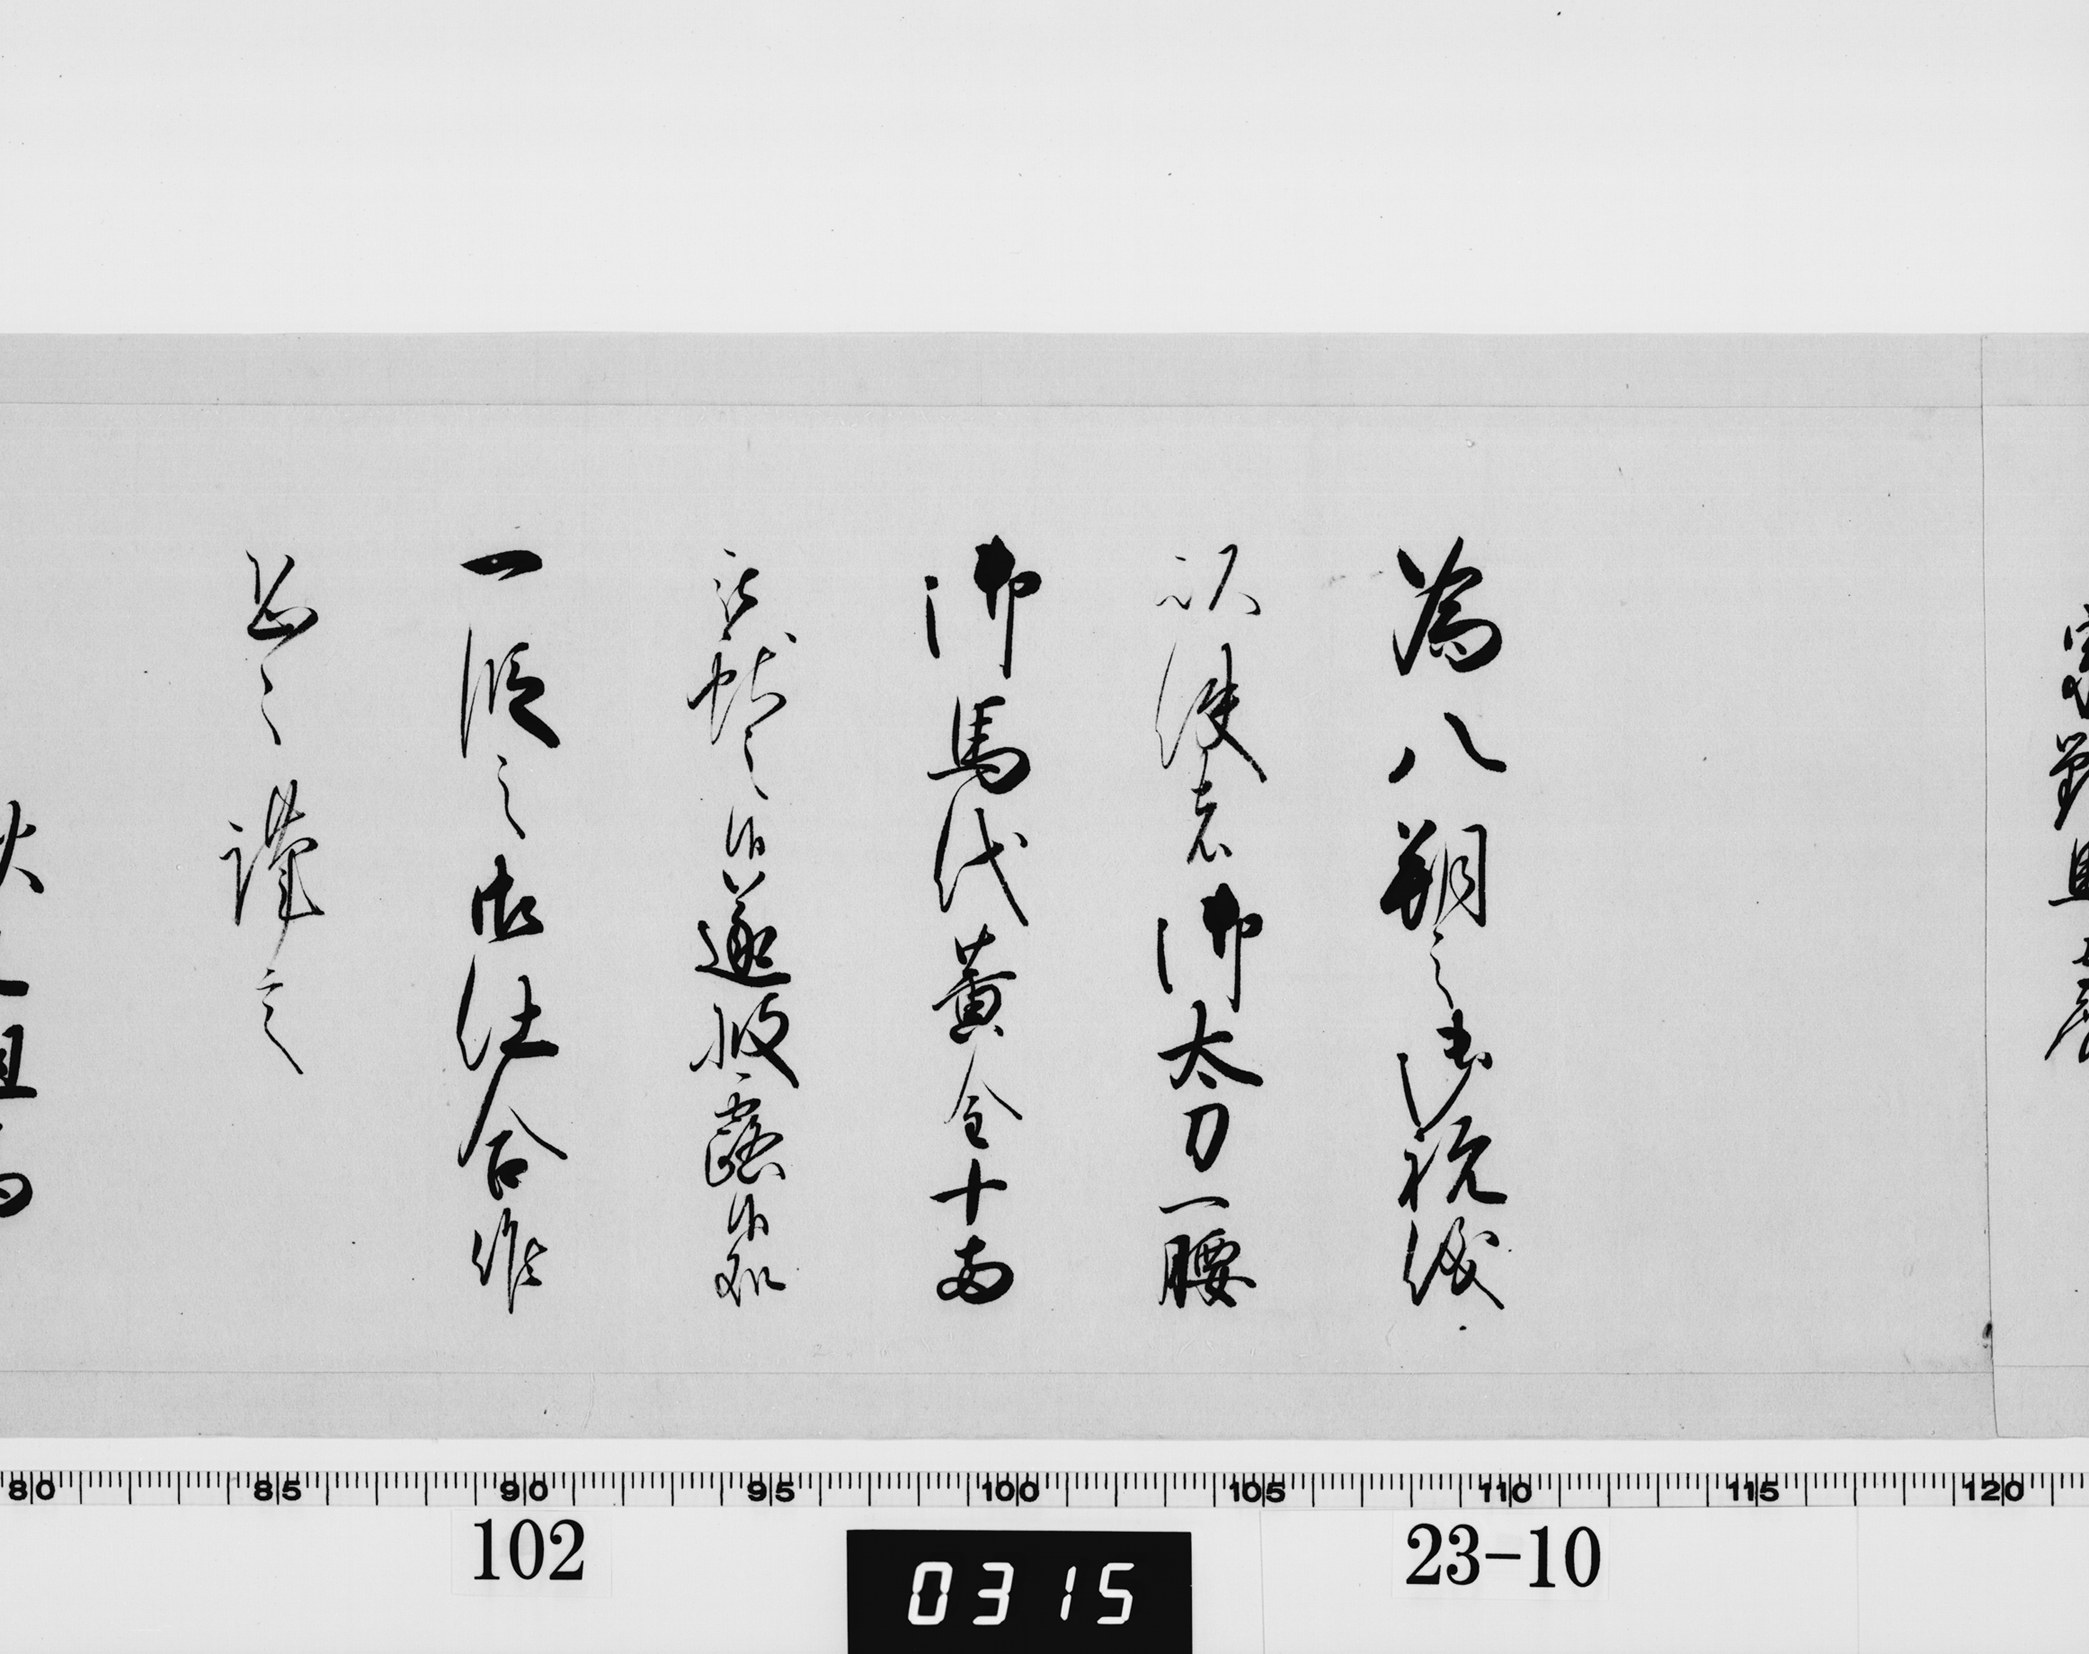 為八朔之御祝儀
以使者御太刀一腰
御馬代黄金十両
被献之候遂披露候処
一段之御仕合候
恐々謹言
80 85 90 95 100 105 110 115 120
102 0315 23-10